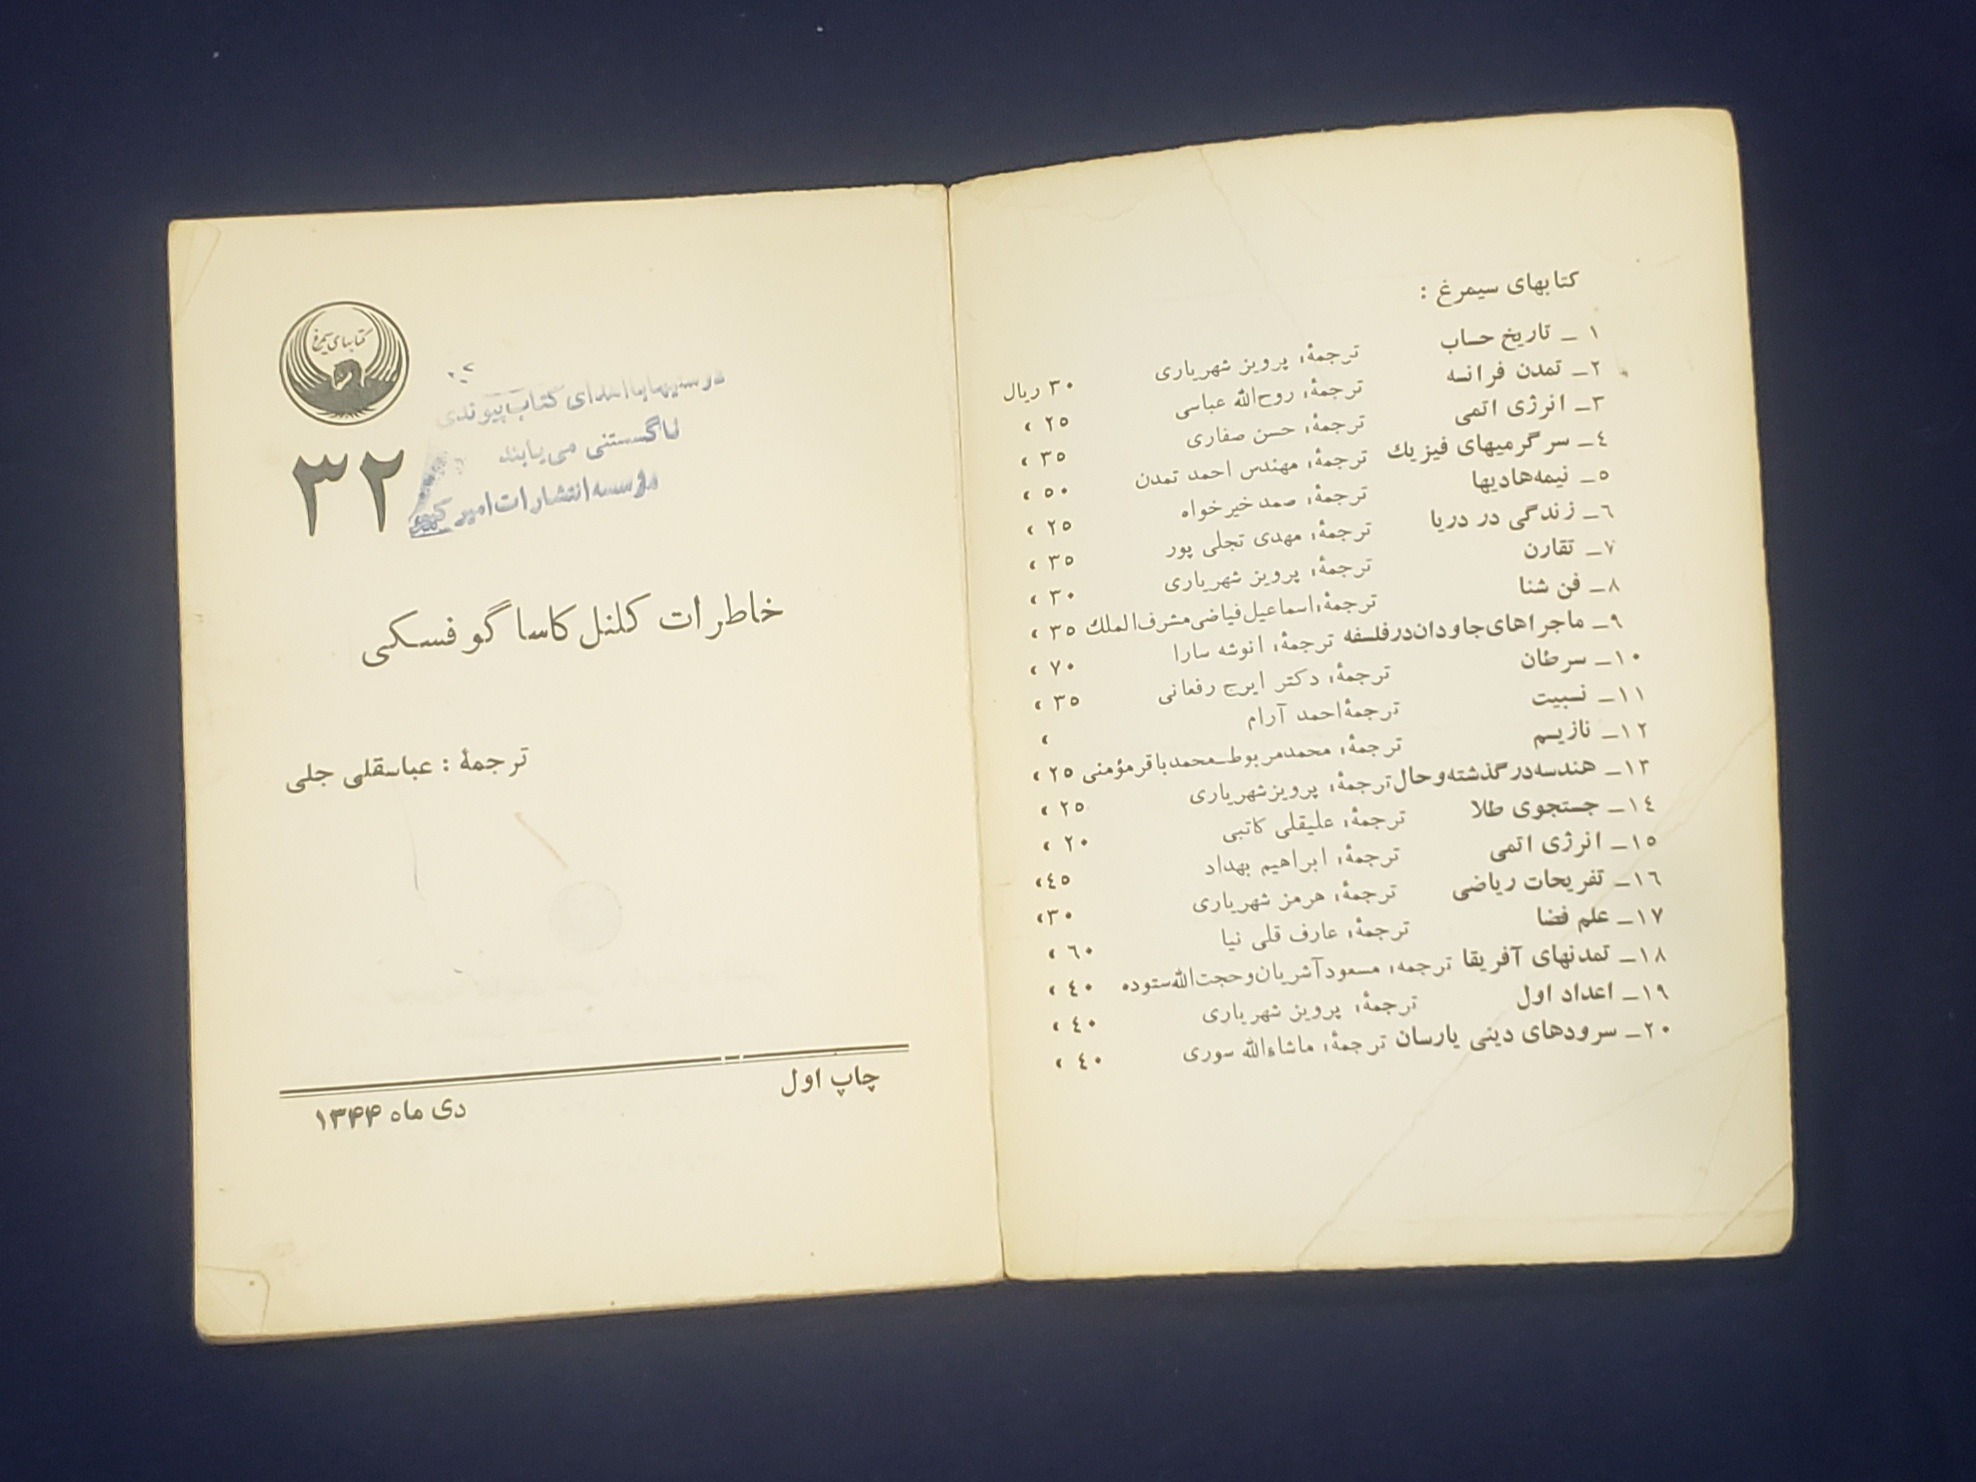 کتابهای سیمرغ :
۱ _ تاریخ حساب ترجمهٔ: پرویز شهریاری ۳۰ ریال
۲_ تمدن فرانسه ترجمهٔ: روح‌الله عباسی ۲۵ »
۳_ انرژی اتمی ترجمهٔ: حسن صفاری ۳۵ »
٤_ سرگرمیهای فیزیك ترجمهٔ: مهندس احمد تمدن ۵۰ »
۵_ نیمه‌هادیها ترجمهٔ: صمد خیرخواه ۲۵ »
٦_ زندگی در دریا ترجمهٔ: مهدی تجلی پور ۳۵ »
۷_ تقارن ترجمهٔ: پرویز شهریاری ۳۰ »
۸_ فن شنا ترجمهٔ: اسماعیل فیاضی مشرف‌الملك ۳۵ »
۹_ ماجراهای جاودان در فلسفه ترجمهٔ: انوشه سارا ۷۰ »
۱۰_ سرطان ترجمهٔ: دکتر ایرج رفعانی ۳۵ »
۱۱_ نسبیت ترجمهٔ احمد آرام »
۱۲_ نازیسم ترجمهٔ: محمد مربوط_محمدباقر مؤمنی ۲۵ »
۱۳_ هندسه در گذشته و حال ترجمهٔ: پرویز شهریاری ۲۵ »
۱٤_ جستجوی طلا ترجمهٔ: علیقلی کاتبی ۲۰ »
۱۵_ انرژی اتمی ترجمهٔ: ابراهیم بهداد ٤۵ »
۱٦_ تفریحات ریاضی ترجمهٔ: هرمز شهریاری ۳۰ »
۱۷_ علم فضا ترجمهٔ: عارف قلی نیا ٦۰ »
۱۸_ تمدنهای آفریقا ترجمه: مسعود آشریان و حجت‌الله ستوده ٤۰ »
۱۹_ اعداد اول ترجمهٔ: پرویز شهریاری ٤۰ »
۲۰_ سرودهای دینی یارسان ترجمهٔ: ماشاءالله سوری ٤۰ »
کتابهای سیمرغ
۳۲
کتاب پیوندی
ناگسستنی می‌یابند
مؤسسه انتشارات امیر کبیر
خاطرات کلنل کاساگوفسکی
ترجمهٔ : عباسقلی جلی
چاپ اول
دی ماه ۱۳۴۴